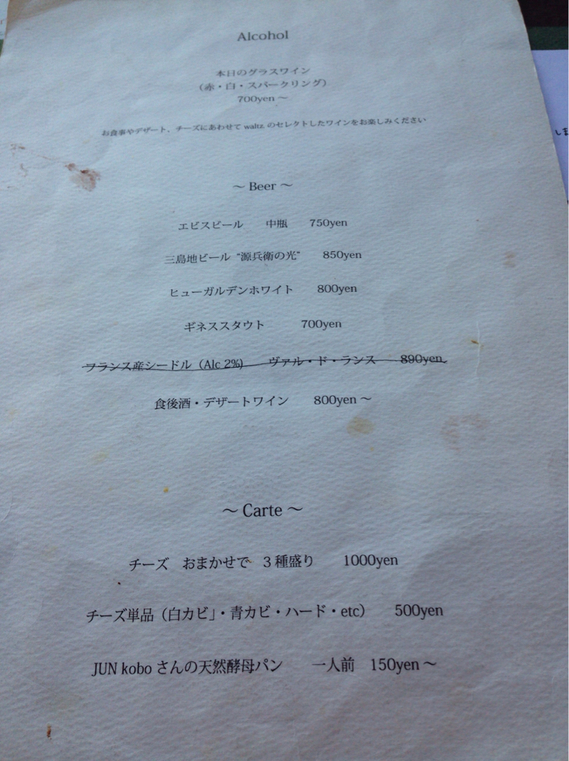 Alcohol
本日のグラスワイン
（赤・白・スパークリング）
700yen ～
お食事やデザート、チーズにあわせて waltz のセレクトしたワインをお楽しみください
～ Beer ～
エビスビール 中瓶 750yen
三島地ビール “源兵衛の光” 850yen
ヒューガルデンホワイト 800yen
ギネススタウト 700yen
フランス産シードル（Alc 2%） ヴァル・ド・ランス 890yen
食後酒・デザートワイン 800yen ～
～ Carte ～
チーズ おまかせで 3 種盛り 1000yen
チーズ単品（白カビ」・青カビ・ハード・etc） 500yen
JUN kobo さんの天然酵母パン 一人前 150yen ～